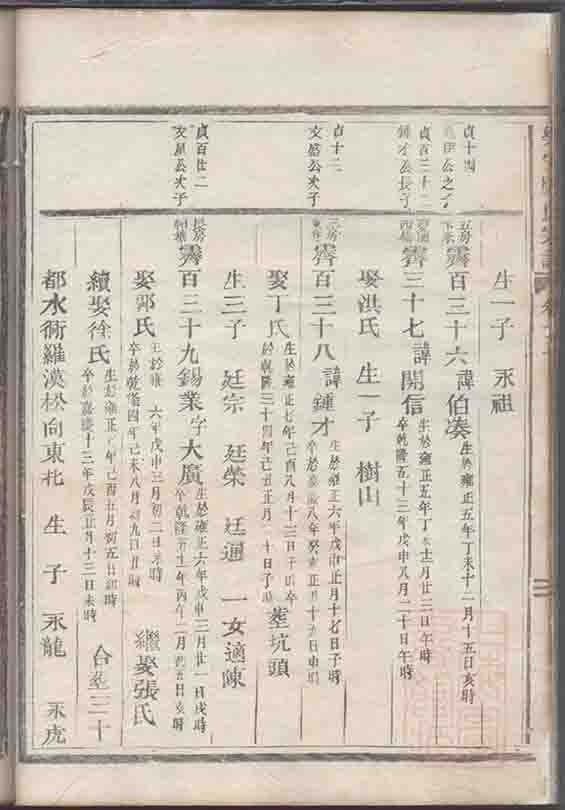 生一子 永祖
貞十四
之子
五房
霽百三十六諱伯湊 生於雍正五年丁未十一月十五日亥時
貞百三十二
鍾才公長子
霽三十七諱開信 生於雍正五年丁未 月廿三日午時
卒乾隆五十三年戊申八月二十日午時
娶洪氏 生一子 樹山
貞十二
文盛公次子
霽百三十八諱鍾才 生於雍正六年戊申正月十七日子時
卒於嘉慶八年癸亥正月十五日 時
娶丁氏 生於雍正七年己酉八月十三日子時卒
於乾隆三十四年己丑正月 十日子時 塟坑頭
生三子 廷宗 廷榮 廷通 一女適陳
貞百廿二
文星公次子
長房
霽百三十九錫業字大廣 生於雍正六年戊申三月廿一日戌時
卒乾隆五十一年丙午二月 五日亥時
娶郭氏 生於雍 六年戊申三月初二日 時
卒於乾隆四年己未八月初九日丑時 繼娶張氏
續娶徐氏 生於雍正七年己酉五月初五日 時
卒於嘉慶十三年戊辰五月十三日未時 合塟三十
都水術羅漢松向東北 生 子 永龍 永虎